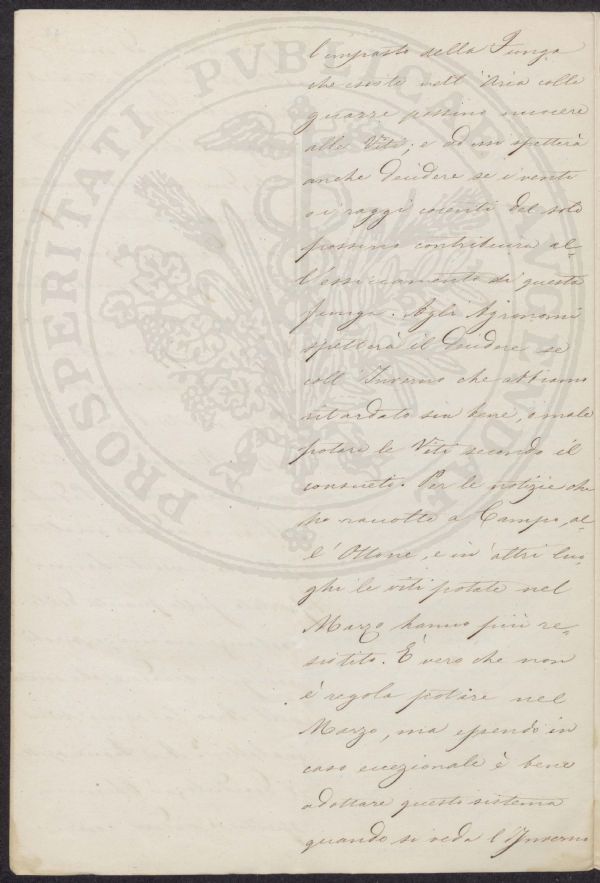 l'impasto della Funga
che esiste nell'Aria colle
guazze possino nuocere
alle Viti; e ad essi spetterà
anche decidere se i venti
o i raggi cocenti del sole
possino contribuire al-
l'essiccamento di questa
funga. Agli Agronomi
spetterà il decidere se
coll'Inverno che abbiamo
ritardato sia bene, o male
potare le Viti secondo il
consueto. Per le notizie che
ho raccolto a Campo al-
l'Ottone, e in altri luo-
ghi le viti potate nel
Marzo hanno più re-
sistito. È vero che non
è regola potare nel
Marzo, ma essendo in
caso eccezionale è bene
adottare questo sistema
quando si veda l'Inverno
PROSPERITATI PVBLICAE AVGENDAE